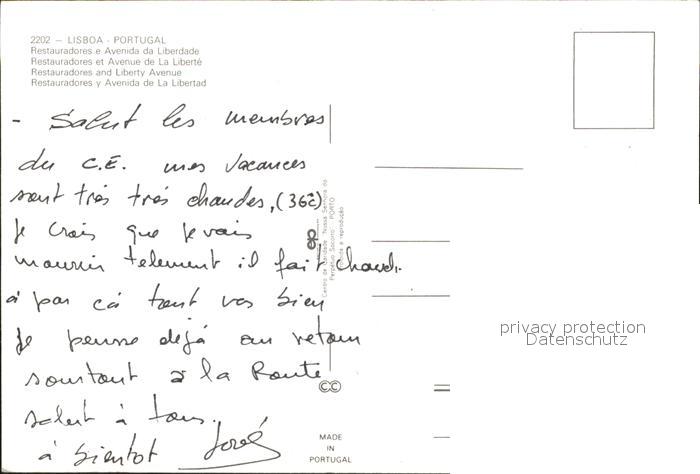 2202 — LISBOA - PORTUGAL
Restauradores e Avenida da Liberdade
Restauradores et Avenue de La Liberté
Restauradores and Liberty Avenue
Restauradores y Avenida de La Libertad
- Salut les membres
du C.E. mes vacances
sont très très chaudes, (36°c)
je crois que je vais
mourrir telement il fait chaud.
à par cà tout vas bien
je pensse déjà au retour
sourtout à la Route
salut à tous.
à bientot José
Centro de Caridade "Nossa Senhora do
Perpétuo Socorro" PORTO
a reprodução
CC
MADE
IN
PORTUGAL
privacy protection
Datenschutz